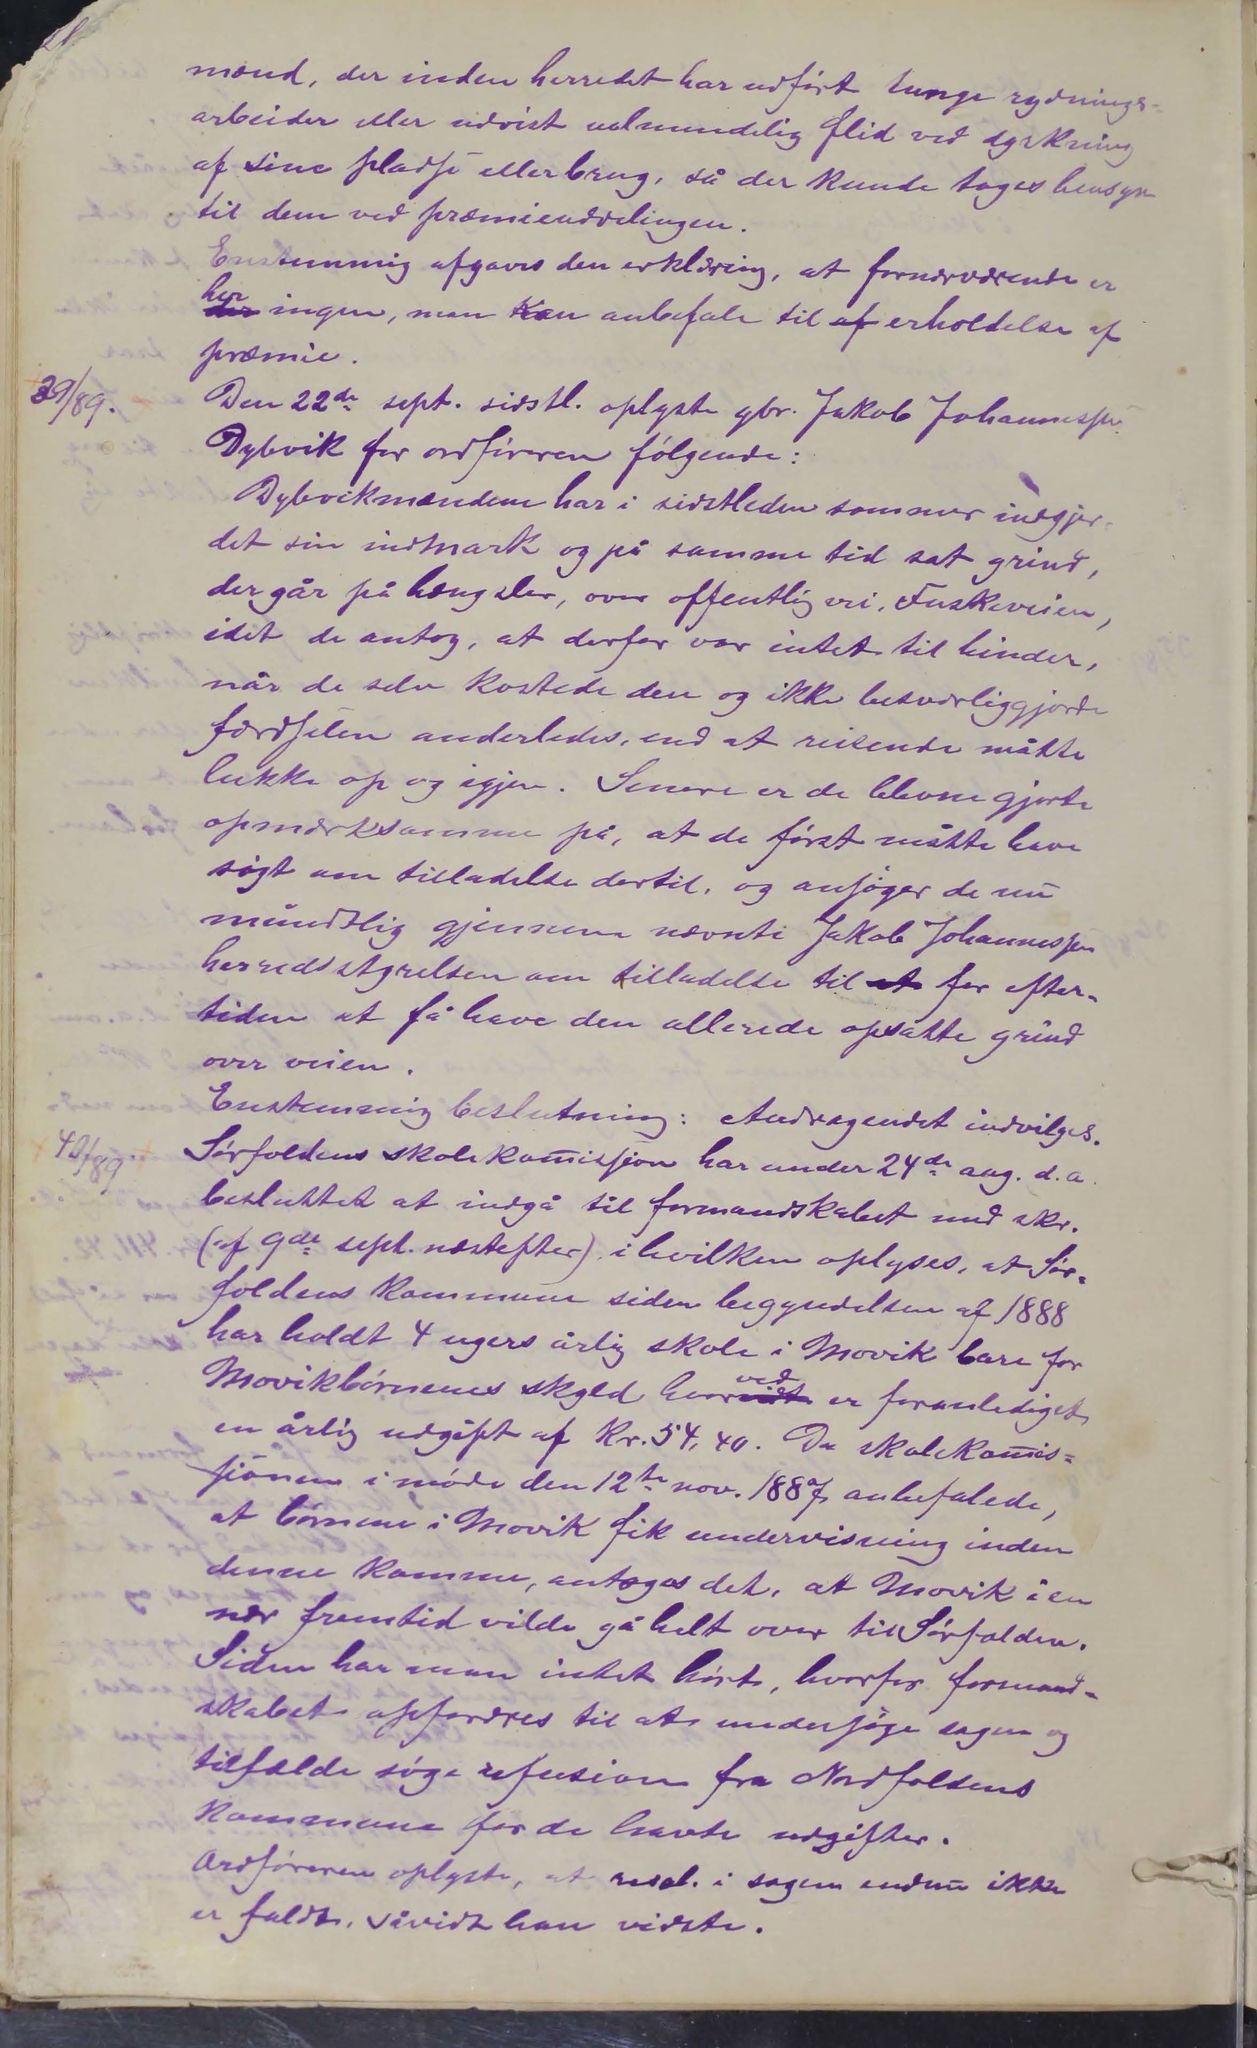 mænd, der inden herredet har udført tunge rydnings-
arbeider eller udvist ualmindelig flid ved dyrkning
af sine pladse eller brug, så der kunde tages hensyn
til dem ved præmieuddelingen.
Enstemmig afgaves den erklæring, at fornærværende er
her
der ingen, man kan anbefale til af erholdelse af
præmie.
39/89. Den 22de sept. sidstl. oplyste gbr. Jakob Johannessen
Dybvik for ordføreren følgende:
Dybvikmændene har i sidstleden sommer indgjer-
det sin indmark og på samme tid sat grind,
der går på hængsler, over offentlig vei, Fuskeveien,
idet de antog, at derfor var intet til hinder,
når de selv kostede den og ikke besværliggjorde
færdselen anderledes, end at reisende måtte
lukke op og igjen. Senere er de blevne gjorte
opmærksomme på, at de først måtte have
søgt om tilladelse dertil, og ansøger de nu
mundtlig gjennem nævnte Jakob Johannessen
herredsstyrelsen om tilladelse til at for efter-
tiden at få have den allerede opsatte grind
over veien.
Enstemmig beslutning: Andragendet indvilges.
40/89 Sørfoldens skolekomission har under 24de aug. d.a.
besluttet at indgå til formandskabet med skr.
(af 9de sept. næstefter) i hvilken oplyses, at Sør-
foldens kommune siden begyndelsen af 1888
har holdt 4 ugers årlig skole i Movik bare for
ved
Movikbørnenes skyld hvorvidt er foranlediget
en årlig udgift af Kr. 54,40. Da skolekomis=
sionen i møde den 12te nov. 1887 anbefalede,
at børnene i Movik fik undervisning inden
denne komme, antoges det, at Movik i en
nær fremtid vilde gå helt over til Sørfolden.
Siden har man intet hørt, hvorfor formand-
skabet opfordres til at undersøge sagen og
tilfælde søge refusion fra Nordfoldens
kommune for de havte udgifter.
Ordføreren oplyste, at resol. i sagen endnu ikke
er faldt, såvidt han vidste.